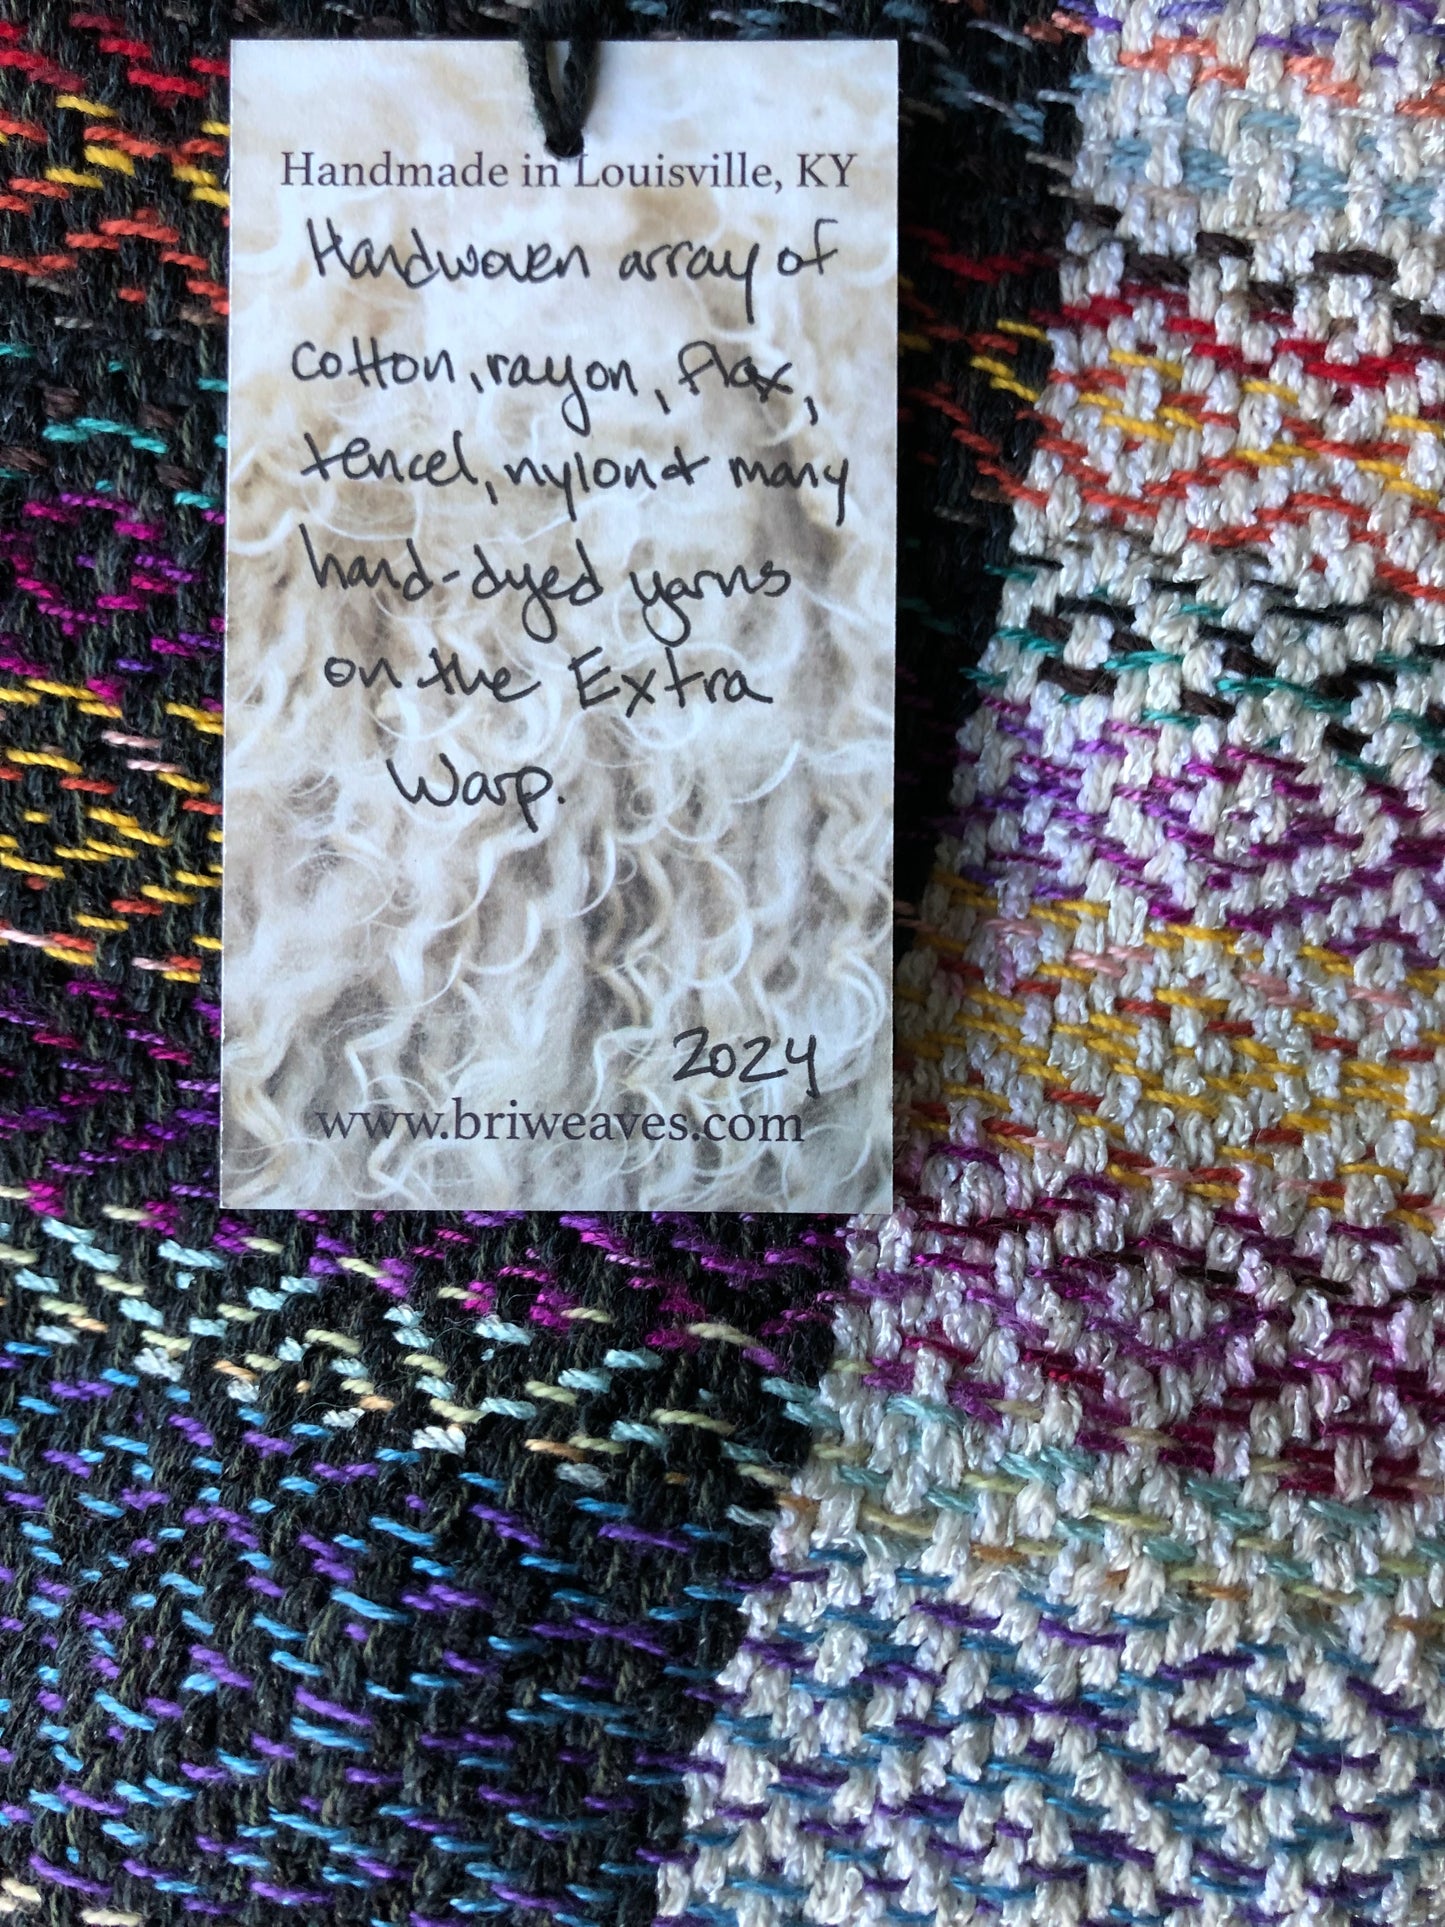 Handmade in Louisville, KY
Handwoven array of
cotton, rayon, flax,
tencel, nylon & many
hand-dyed yarns
on the Extra
Warp.
2024
www.briweaves.com